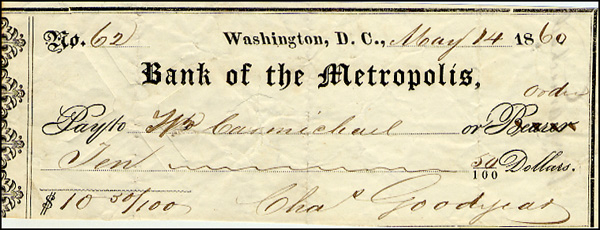 No. 62 Washington, D. C., May 14 1860
Bank of the Metropolis,
Order
Pay to Wm Carmichael or Bearer
Ten 50/100 Dollars.
$10 50/100 Chas Goodyear